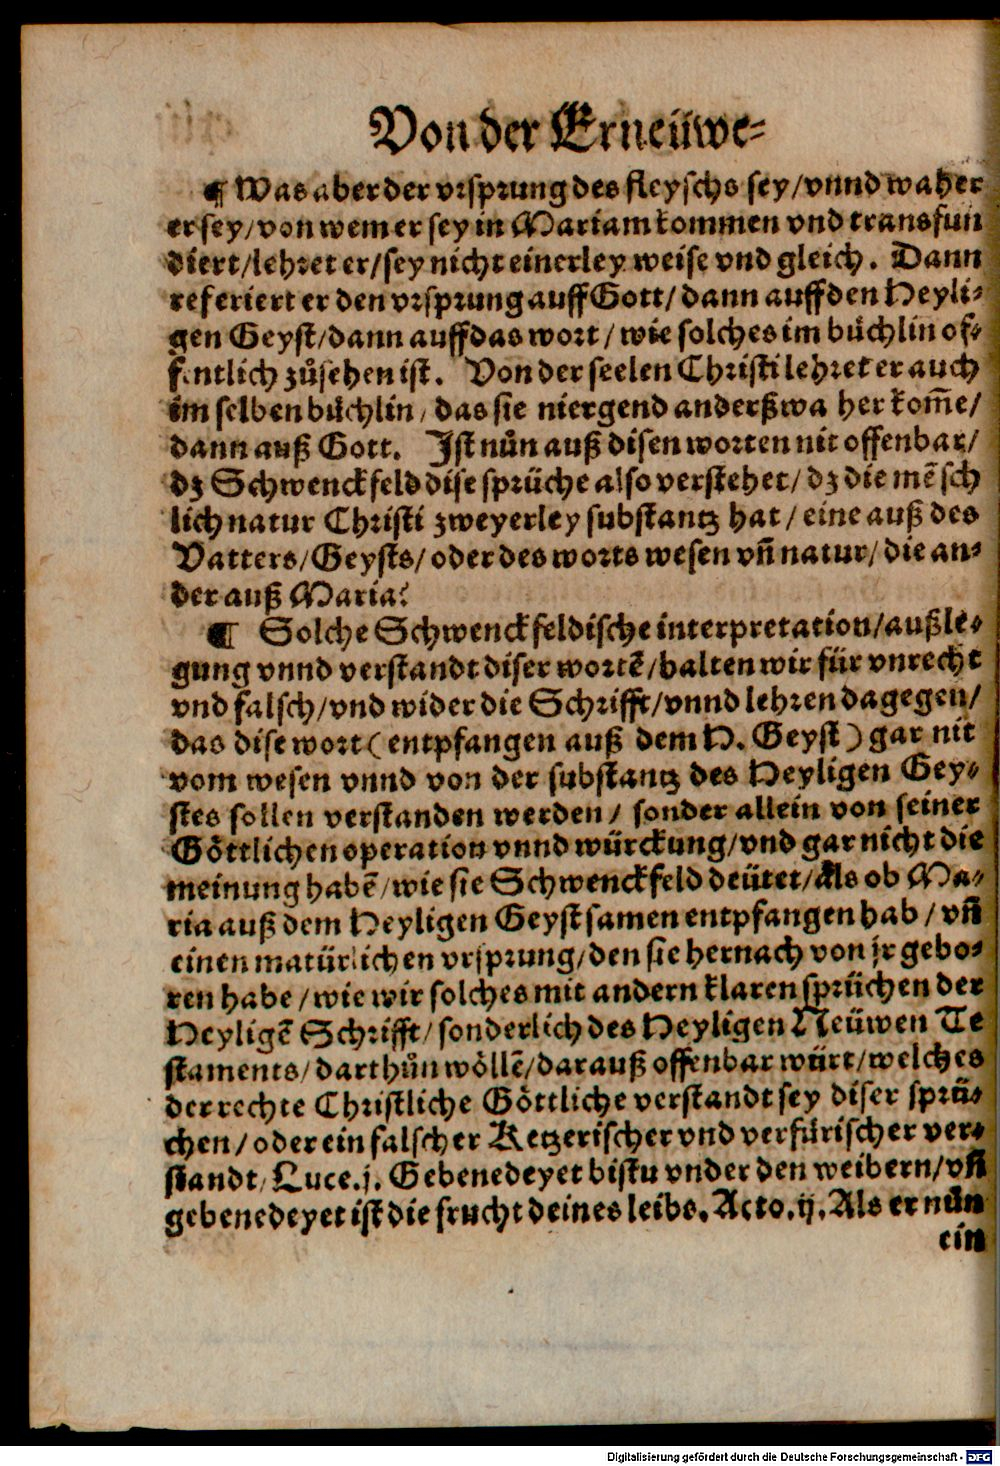 Von der Erneüwe-
¶ Was aber der vrsprung des fleyschs sey/vnnd wa her
er sey/von wem er sey in Mariam kommen vnd transfun
diert/lehret er/sey nicht einerley weise vnd gleich. Dann
referiert er den vrsprung auff Gott/dann auff den Heyli-
gen Geyst/dann auff das wort/wie solches im büchlin of-
fentlich zůsehen ist. Von der seelen Christi lehret er auch
im selben büchlin/das sie niergend anderßwa her kom̃e/
dann auß Gott. Ist nůn auß disen worten nit offenbar/
dz Schwenckfeld dise sprüche also verstehet/dz die mẽsch
lich natur Christi zweyerley substantz hat/eine auß des
Vatters/Geysts/oder des worts wesen vñ natur/die an-
der auß Maria?
¶ Solche Schwenckfeldische interpretation/außle-
gung vnnd verstandt diser wortẽ/halten wir für vnrecht
vnd falsch/vnd wider die Schrifft/vnnd lehren dagegen/
das dise wort (entpfangen auß dem H. Geyst) gar nit
vom wesen vnnd von der substantz des Heyligen Gey-
stes sollen verstanden werden/ sonder allein von seiner
Göttlichen operation vnnd würckung/vnd gar nicht die
meinung habẽ/wie sie Schwenckfeld deütet/als ob Ma-
ria auß dem Heyligen Geyst samen entpfangen hab/vñ
einen matürlichen vrsprung/den sie hernach von jr gebo-
ren habe/wie wir solches mit andern klaren sprüchen der
Heyligẽ Schrifft/sonderlich des Heyligen Neüwen Te
staments/darthůn wöllẽ/darauß offenbar würt/welches
der rechte Christliche Göttliche verstandt sey diser sprü-
chen/oder ein falscher Ketzerischer vnd verfürischer ver-
standt/Luce.j. Gebenedeyet bistu vnder den weibern/vñ
gebenedeyet ist die frucht deines leibs. Acto.ij. Als er nůn
ein
Digitalisierung gefördert durch die Deutsche Forschungsgemeinschaft - DFG